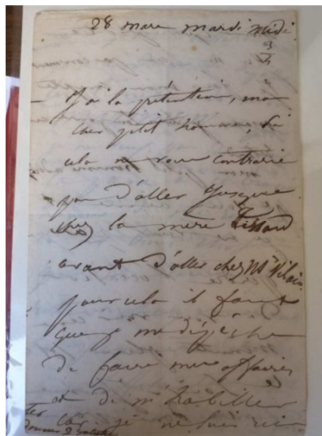 28 mars mardi midi
3/4
J'ai la prétention, mon
cher petit homme, si
cela ne vous contrarie
pas d'aller jusque
chez la mère
avant d'aller chez Mr Vilain
pour cela il faut
que je me dépêche
de faire mes affaires
et de m'habiller
car je ne suis